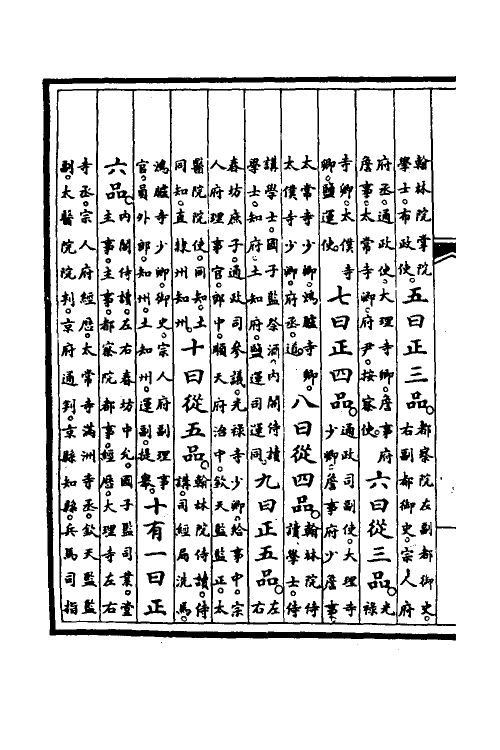 翰林院掌院
學士。布政使。
五曰正三品。
都察院左副都御史。
右副都御史。宗人府
府丞。通政使。大理寺卿。詹事府
詹事。太常寺卿。府尹。按察使。
六曰從三品。
光
祿
寺卿。太僕寺
卿。鹽運使。
七曰正四品。
通政司副使。大理寺
少卿。詹事府少詹事。
太常寺少卿。鴻臚寺卿。
太僕寺少卿。府丞。道。
八曰從四品。
翰林院侍
讀學士。侍
講學士。國子監祭酒。內閣侍讀
學士。知府。土知府。鹽運司運同。
九曰正五品。
左
右
春坊庶子。通政司參議。光祿寺少卿。給事中。宗
人府理事官。郎中。順天府治中。欽天監監正。太
醫院院使。同知。土
同知。直隸州知州。
十曰從五品。
翰林院侍讀。侍
講。司經局洗馬。
鴻臚寺少卿。御史。宗人府副理事
官。員外郎。知州。土知州。運副。提舉。
十有一曰正
六品。
內閣侍讀。左右春坊中允。國子監司業。堂
主事。主事。都察院都事。經歷。大理寺左右
寺丞。宗人府經歷。太常寺滿洲寺丞。欽天監監
副。太醫院院判。京府通判。京縣知縣。兵馬司指